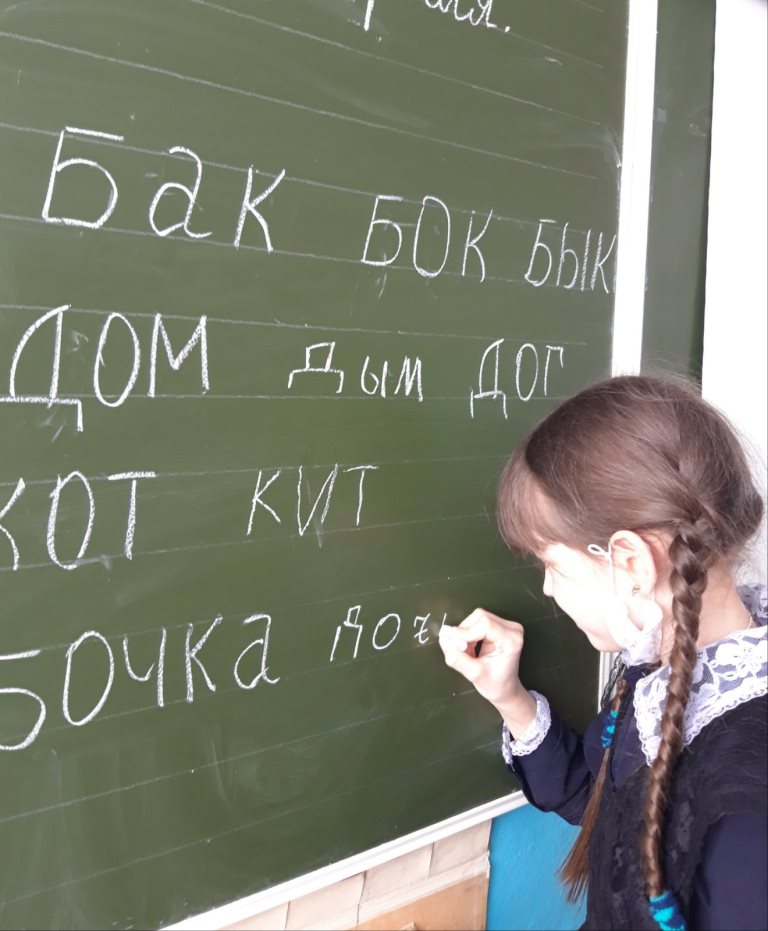 Бак БОК БЫК
ДОМ ДЫМ ДОГ
КОТ КИТ
БОЧКА